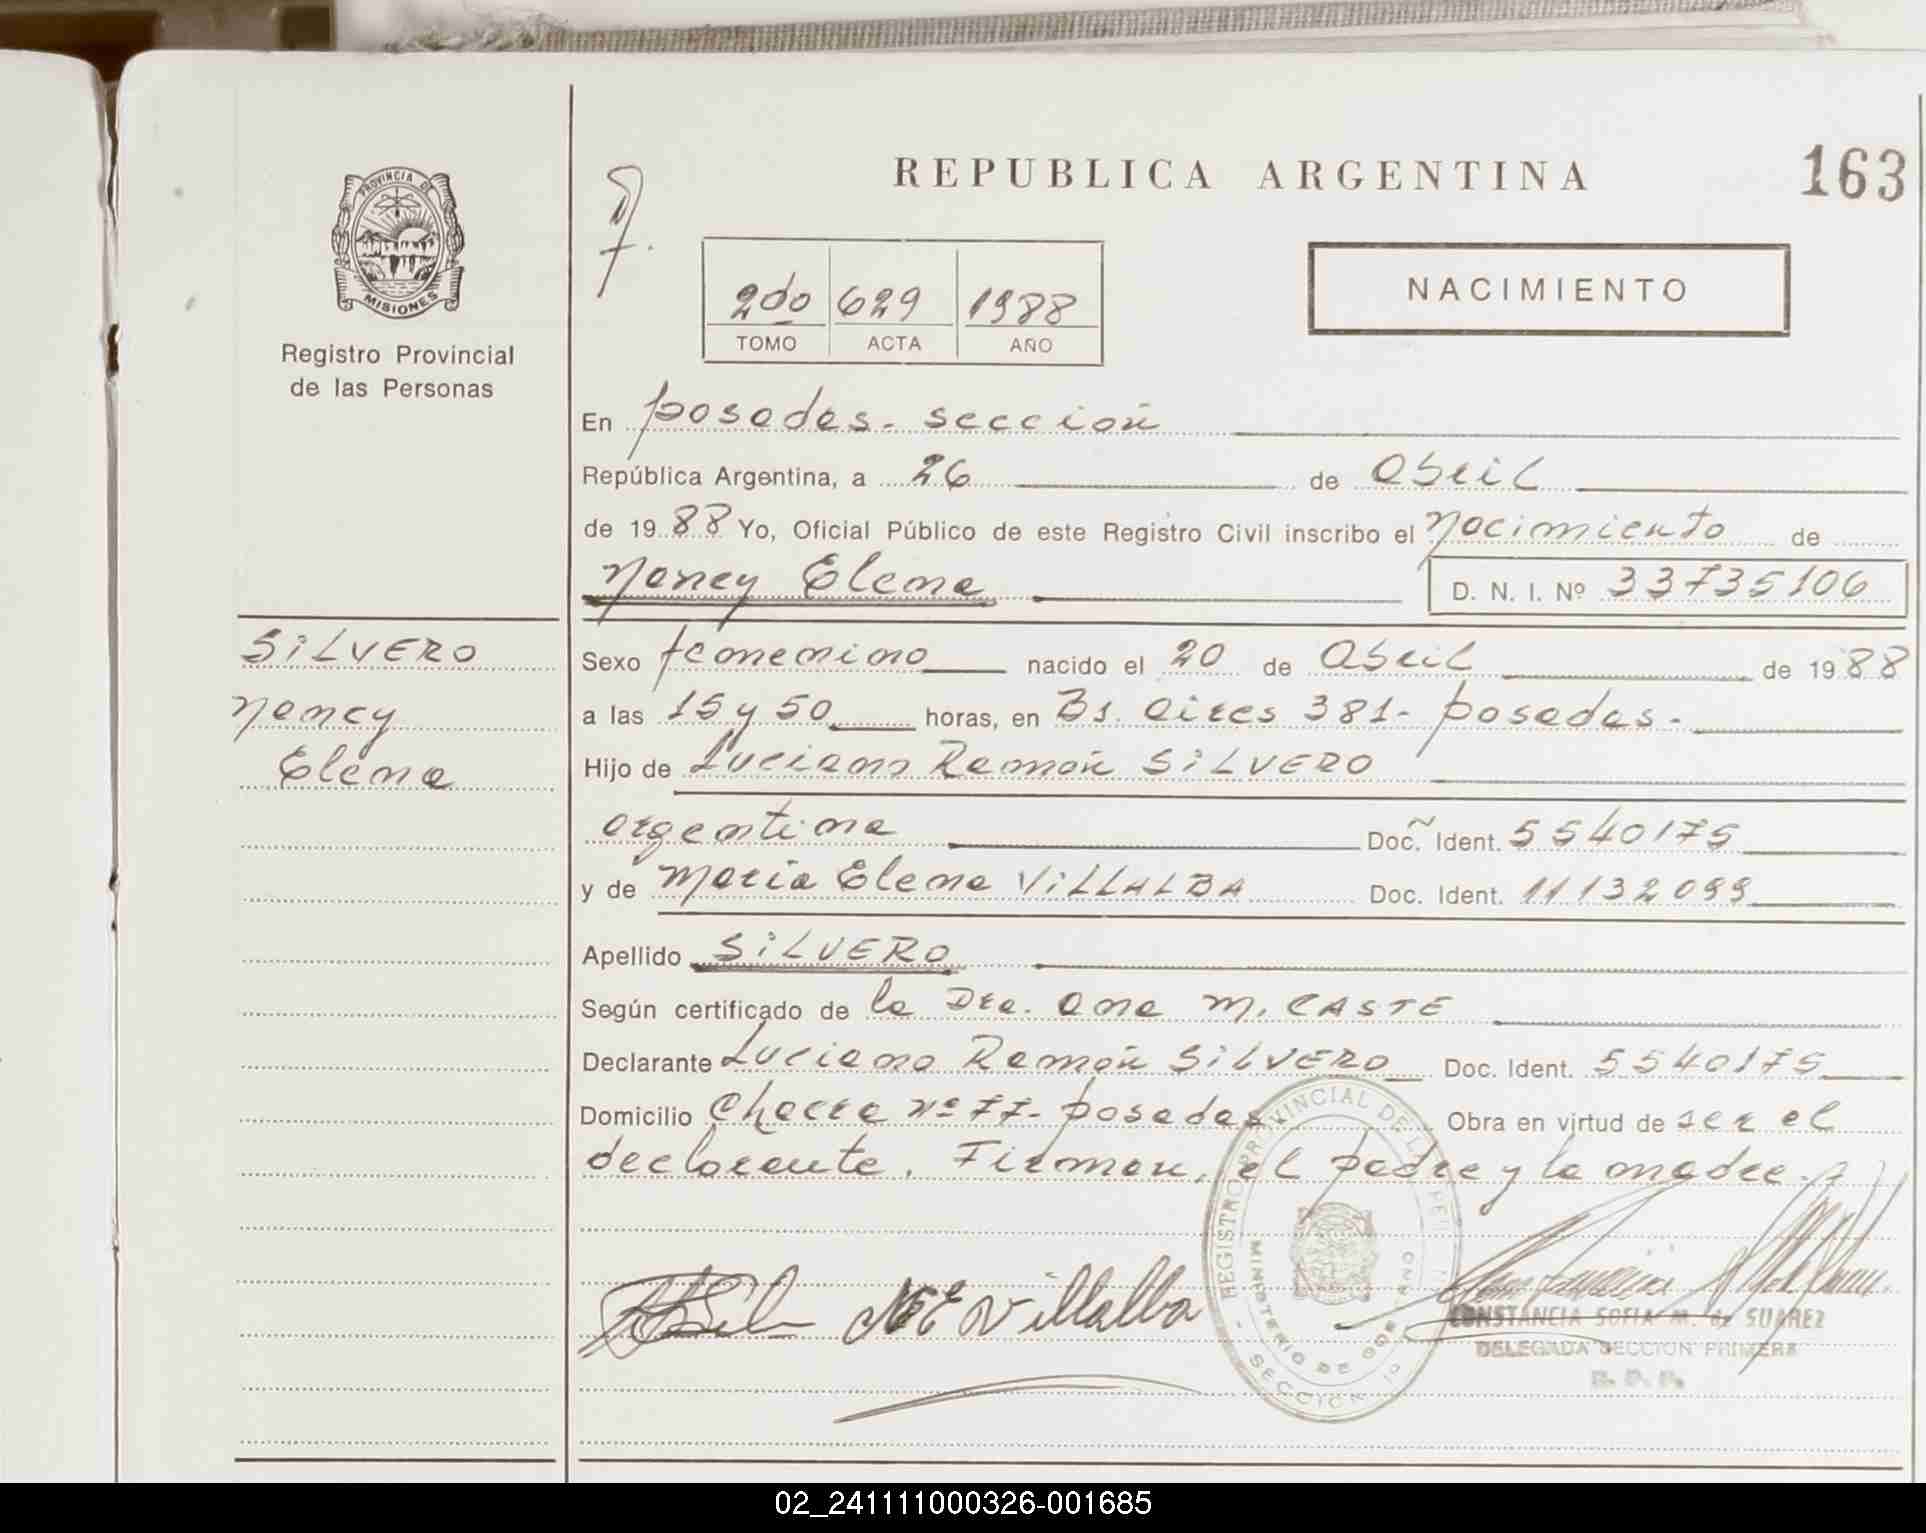 REPUBLICA ARGENTINA
163
PROVINCIA DE
MISIONES
Registro Provincial
de las Personas
2do 629 1988
TOMO ACTA AÑO
NACIMIENTO
En Posadas- sección
República Argentina, a 26 de Abril
de 1988 Yo, Oficial Público de este Registro Civil inscribo el Nacimiento de
Nancy Elena
D. N. I. Nº 33735106
SILVERO
Nancy
Elena
Sexo femenino nacido el 20 de Abril de 1988
a las 15 y 50 horas, en Bs. Aires 381- Posadas.
Hijo de Luciano Ramón SILVERO
argentina Doc. Ident. 5540175
y de María Elena VILLALBA Doc. Ident. 11132099
Apellido SILVERO
Según certificado de la Dra. Ana M. CASTE
Declarante Luciano Ramón SILVERO Doc. Ident. 5540175
Domicilio Chacra nº 77- Posadas Obra en virtud de ser el
declarante. Firman, el padre y la madre.
REGISTRO PROVINCIAL DE
MINISTERIO DE GOB
SECCION 1º
M E Villalba
CONSTANCIA SOFIA M. de SUAREZ
DELEGADA SECCION PRIMERA
R. P. P.
02_241111000326-001685